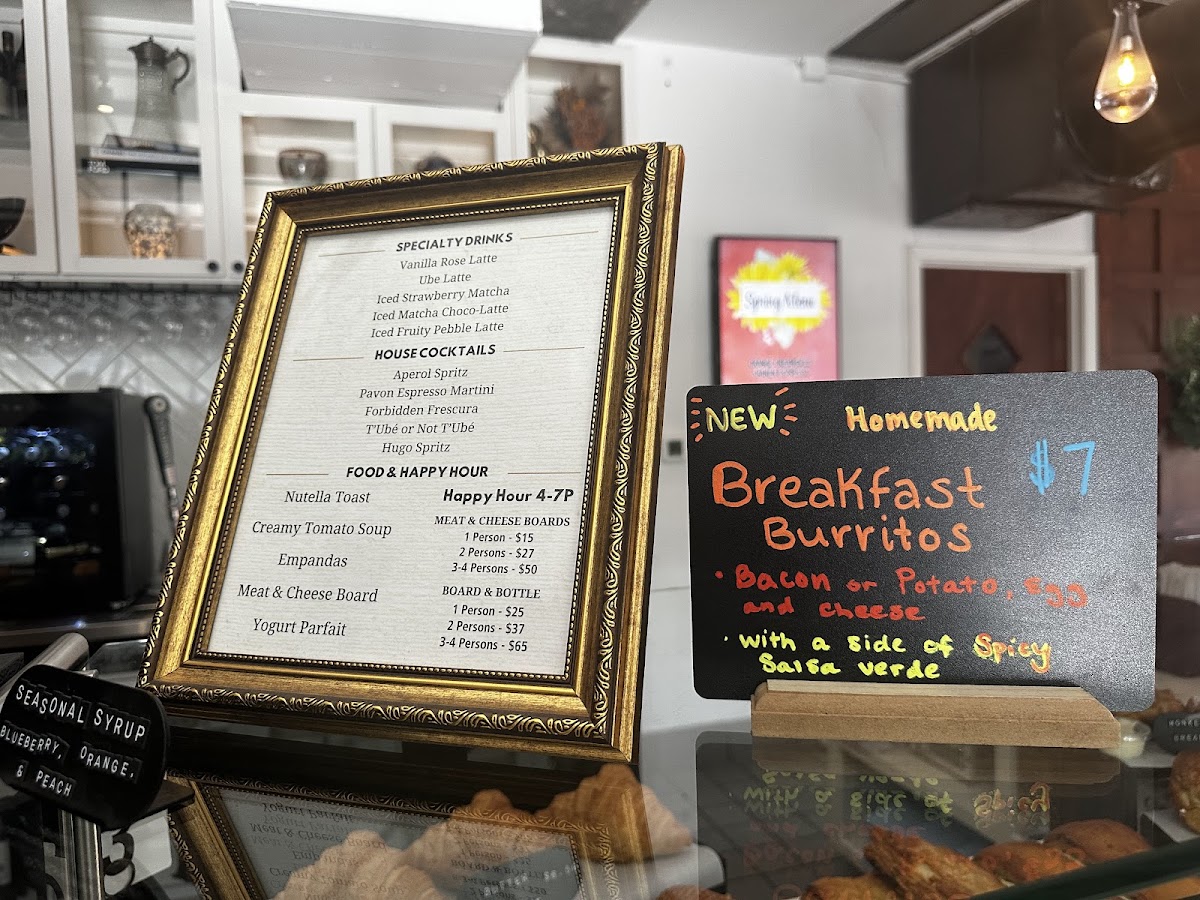 SPECIALTY DRINKS
Vanilla Rose Latte
Ube Latte
Iced Strawberry Matcha
Iced Matcha Choco-Latte
Iced Fruity Pebble Latte
HOUSE COCKTAILS
Aperol Spritz
Pavon Espresso Martini
Forbidden Frescura
T'Ubé or Not T'Ubé
Hugo Spritz
FOOD & HAPPY HOUR
Nutella Toast
Creamy Tomato Soup
Empandas
Meat & Cheese Board
Yogurt Parfait
Happy Hour 4-7P
MEAT & CHEESE BOARDS
1 Person - $15
2 Persons - $27
3-4 Persons - $50
BOARD & BOTTLE
1 Person - $25
2 Persons - $37
3-4 Persons - $65
NEW Homemade
Breakfast $7
Burritos
• Bacon or Potato, Egg
and cheese
• with a side of Spicy
Salsa verde
SEASONAL SYRUP
BLUEBERRY, ORANGE,
& PEACH
Spring Menu